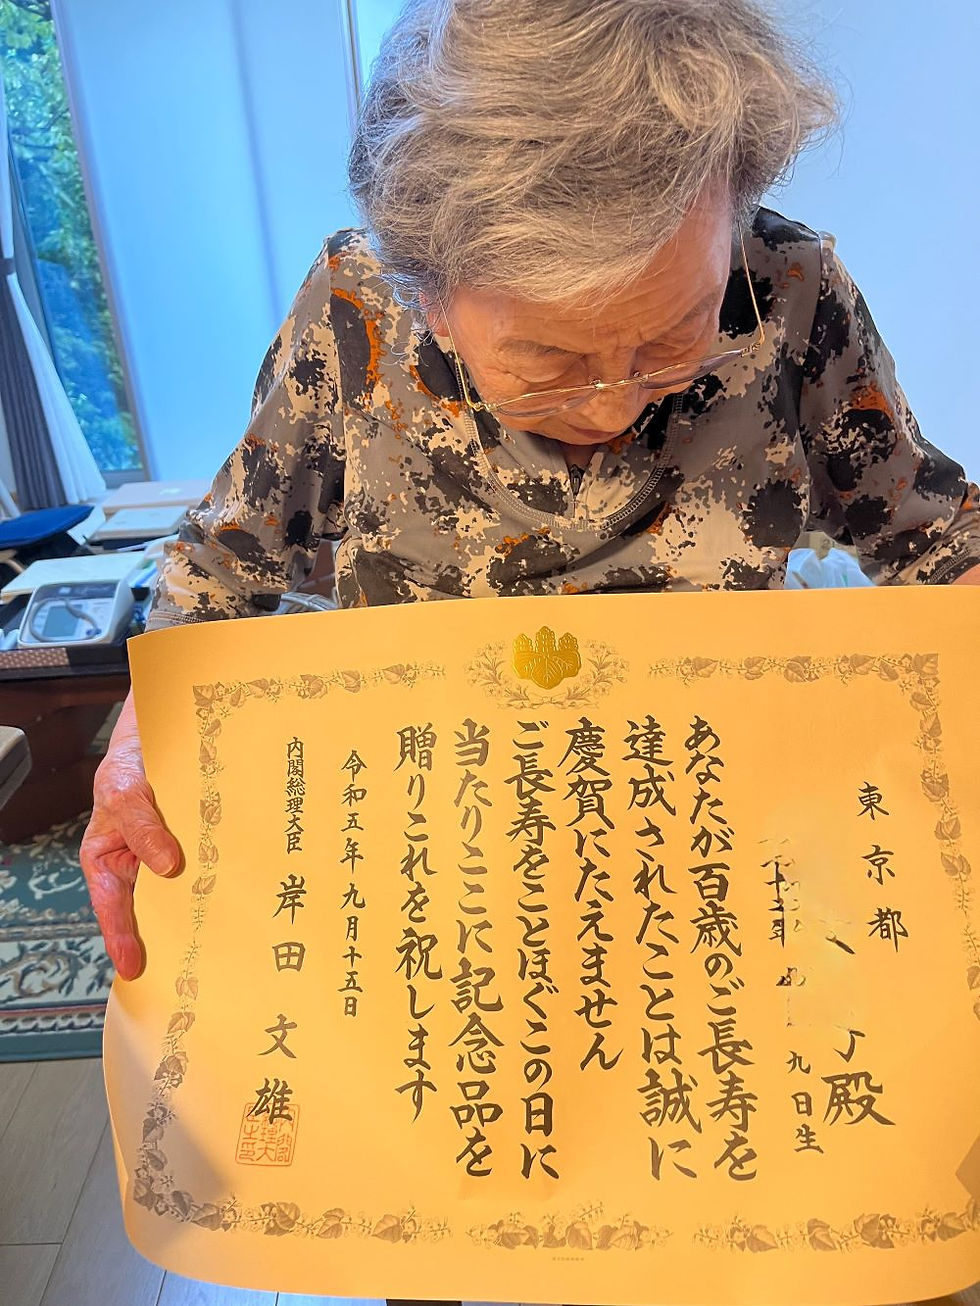 東京都
殿
九日生
あなたが百歳のご長寿を
達成されたことは誠に
慶賀にたえません
ご長寿をことほぐこの日に
当たりここに記念品を
贈りこれを祝します
令和五年九月十五日
内閣総理大臣 岸田文雄